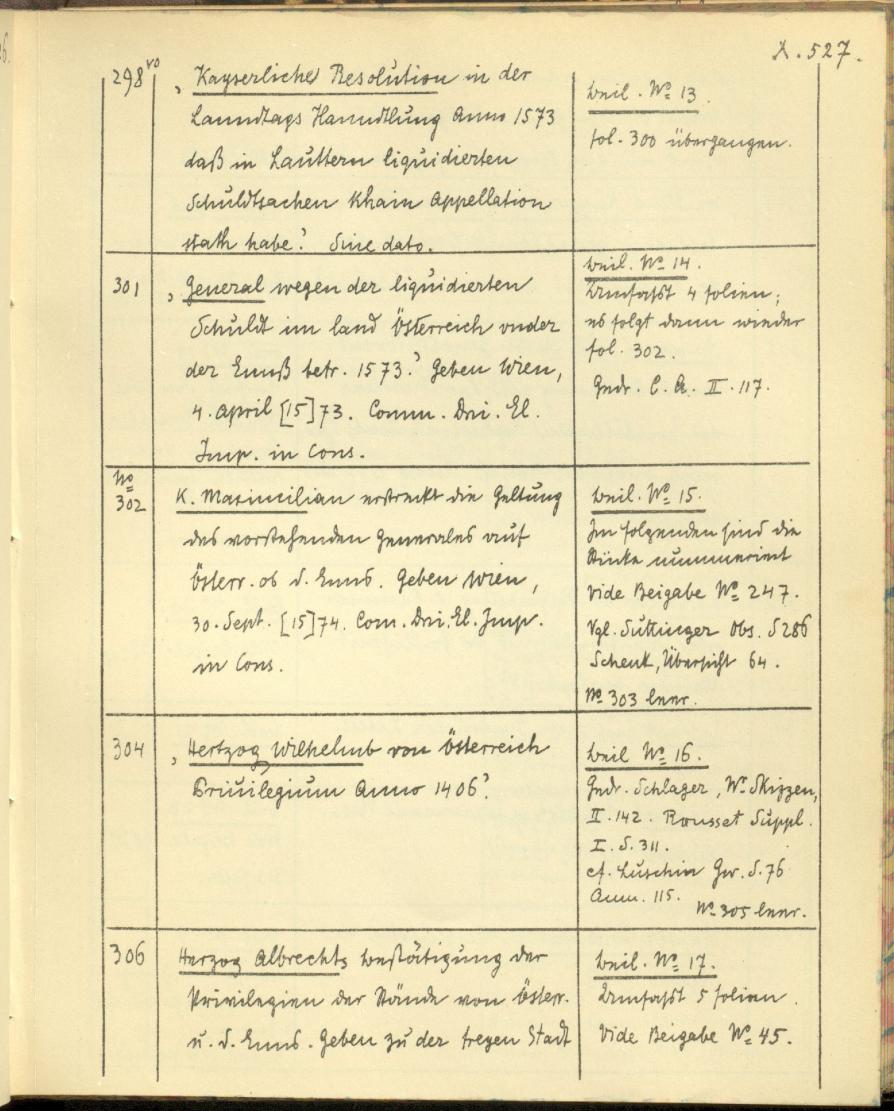 X. 527.
298 vo
‚Kayserliche Resolution in der
Lanndtags Hanndlung Anno 1573
daß in Lauttern liquidierten
Schuldtsachen khain Appellation
stath habe.’ Sine dato.
Beil. No 13.
fol. 300 übergangen.
301
‚General wegen der liquidierten
Schuldt im land Österreich vnder
der Ennß betr. 1573.’ Geben Wien,
4. April [15]73. Comm. Dni. El.
Imp. in Cons.
Beil. No 14.
Umfaßt 4 folien;
es folgt dann wieder
fol. 302.
Gedr. C. A. II. 117.
No 302
K. Maximilian erstreckt die Geltung
des vorstehenden Generales auf
Österr. ob d. Enns. Geben Wien,
30. Sept. [15]74. Com. Dni. El. Imp.
in Cons.
Beil. No 15.
Im folgenden sind die
Stücke nummeriert
Vide Beigabe No 247.
Vgl. Suttinger Obs. S 286
Schenk, Übersicht 64.
No 303 leer.
304
‚Hertzog Wilhelmb von Österreich
Priuilegium Anno 1406’.
Beil No 16.
Gedr. Schlager, Wr. Skizzen,
II. 142. Rousset Suppl.
I. S. 311.
cf. Luschin Gw. S. 76
Anm. 115.
No 305 leer.
306
Herzog Albrechts bestätigung der
Privilegien der Stände von Österr.
u. d. Enns. Geben zu der freyen Stadt
Beil. No 17.
Umfaßt 5 folien.
Vide Beigabe No 45.